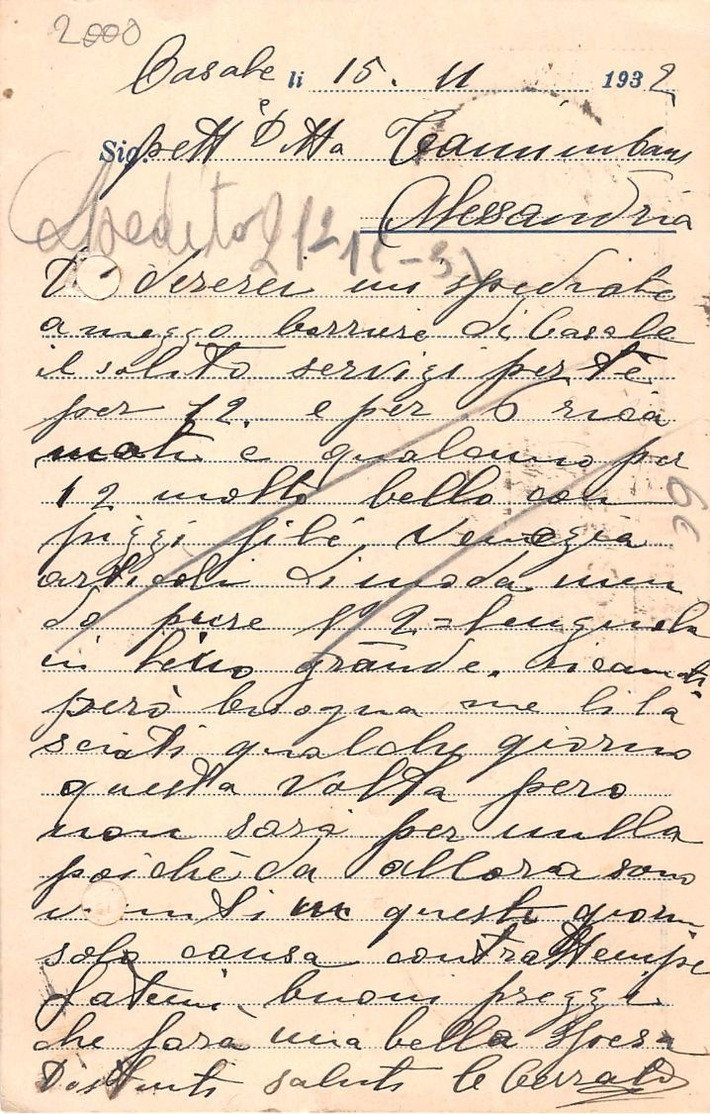 2000
Casale li 15. 11 1932
Sig. pett Ditta Tannenbaum
Alessandria
Spedito 2/12
dererei mi spediate
a mezzo corriere di Casale
il solito servizi per tè
per 12. e per 6 rica
mati e qualcuno per
12 molto bello con
pizzi filé, Venezia
articoli di moda men
do pure 1 o 2 = lenzuola
in lino grande. ricamati
però bisogna me li la
sciati qualche giorno
questa volta pero
non sarà per nulla
poichè da allora sono
in questi giorni
solo causa contrattempi
Fatemi buoni prezzi
che farà una bella spesa
Distinti saluti